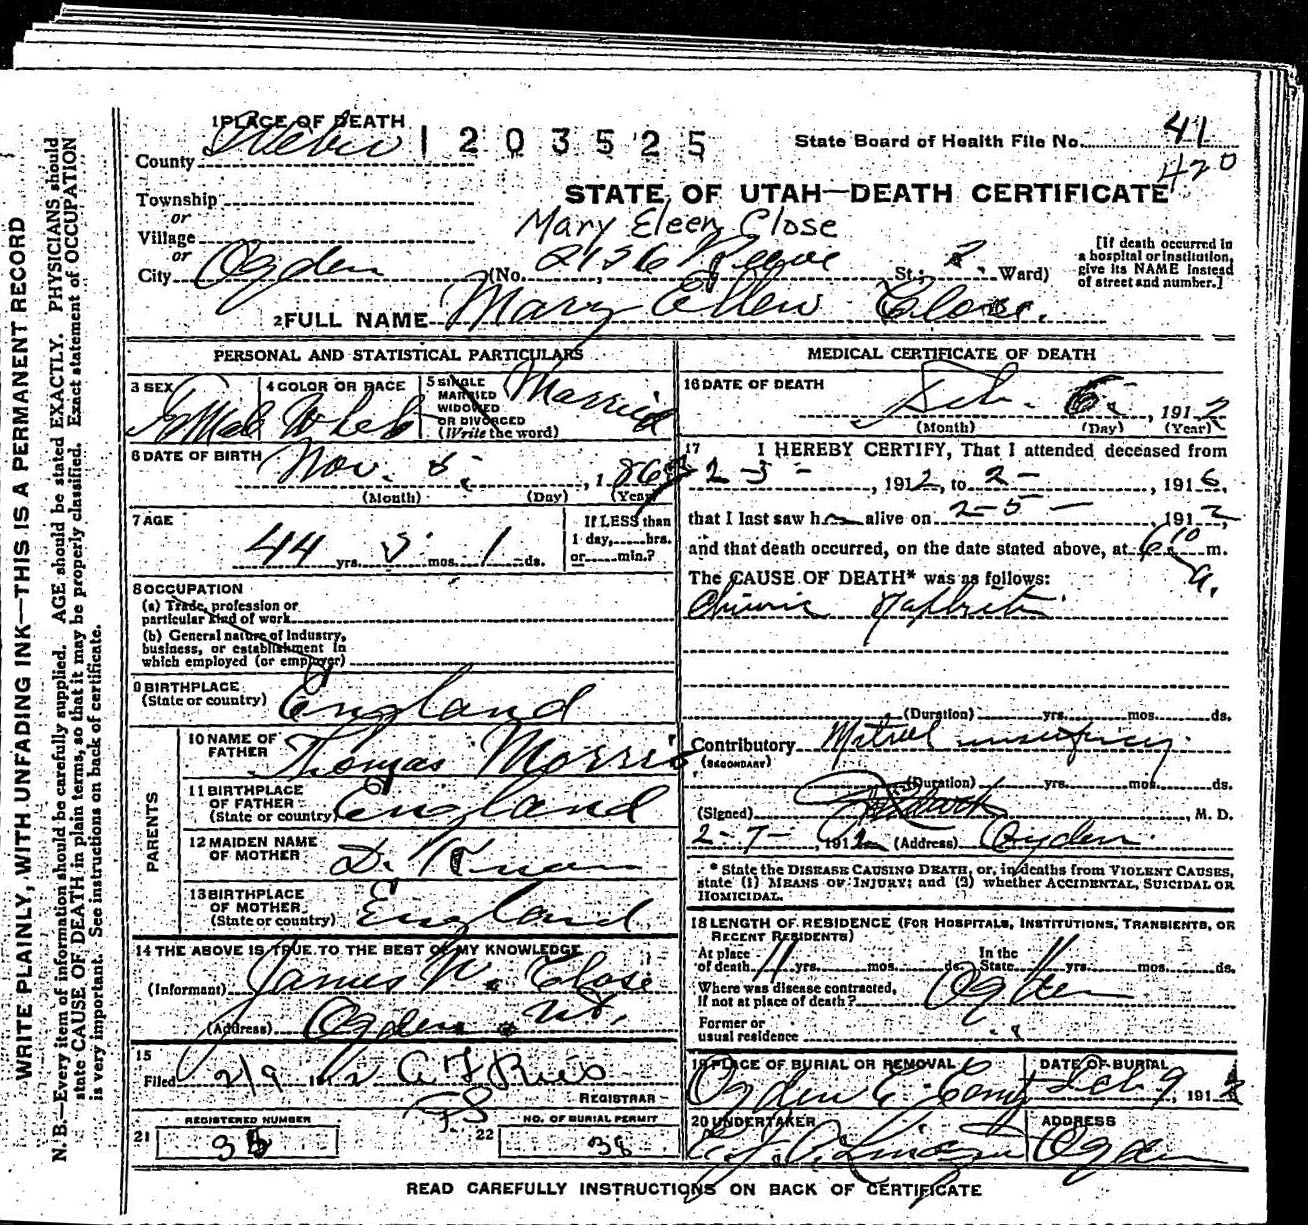 WRITE PLAINLY, WITH UNFADING INK—THIS IS A PERMANENT RECORD
N. B.—Every item of information should be carefully supplied. AGE should be stated EXACTLY. PHYSICIANS should
state CAUSE OF DEATH in plain terms, so that it may be properly classified. Exact statement of OCCUPATION
is very important. See instructions on back of certificate.
1 PLACE OF DEATH
County Weber
1203525
State Board of Health File No. 41
420
Township
or
Village
or
City Ogden
STATE OF UTAH—DEATH CERTIFICATE
Mary Eleen Close
(No. 2126 St.; 2 Ward)
[If death occurred in
a hospital or institution,
give its NAME instead
of street and number.]
2 FULL NAME Mary Ellen Close.
PERSONAL AND STATISTICAL PARTICULARS
3 SEX Female
4 COLOR OR RACE White
5 SINGLE
MARRIED
WIDOWED
OR DIVORCED
(Write the word)
Married
6 DATE OF BIRTH Nov. 5, 1867
(Month) (Day) (Year)
7 AGE
44 yrs. 3 mos. 1 ds.
If LESS than
1 day, hrs.
or min.?
8 OCCUPATION
(a) Trade, profession or
particular kind of work
(b) General nature of industry,
business, or establishment in
which employed (or employer)
9 BIRTHPLACE
(State or country) England
PARENTS
10 NAME OF
FATHER Thomas Morris
11 BIRTHPLACE
OF FATHER
(State or country) England
12 MAIDEN NAME
OF MOTHER D. Know
13 BIRTHPLACE
OF MOTHER
(State or country) England
14 THE ABOVE IS TRUE TO THE BEST OF MY KNOWLEDGE
(Informant) James W. Close
(Address) Ogden Ut.
15
Filed 2/9 1912
REGISTRAR
REGISTERED NUMBER
21 35
22 NO. OF BURIAL PERMIT
38
MEDICAL CERTIFICATE OF DEATH
16 DATE OF DEATH
Feb. 6, 1912
(Month) (Day) (Year)
17 I HEREBY CERTIFY, That I attended deceased from
2-3-, 1912, to 2-, 1916,
that I last saw h alive on 2-5-1912,
and that death occurred, on the date stated above, at 6:10 m.
a.
The CAUSE OF DEATH* was as follows:
Chronic Nephritis
(Duration) yrs. mos. ds.
Contributory Mitral insufficiency
(SECONDARY)
(Duration) yrs. mos. ds.
(Signed) , M. D.
2-7-, 1912 (Address) Ogden.
* State the DISEASE CAUSING DEATH, or, in deaths from VIOLENT CAUSES,
state (1) MEANS OF INJURY; and (2) whether ACCIDENTAL, SUICIDAL OR
HOMICIDAL.
18 LENGTH OF RESIDENCE (FOR HOSPITALS, INSTITUTIONS, TRANSIENTS, OR
RECENT RESIDENTS)
At place
of death 11 yrs. mos. ds. In the
State 11 yrs. mos. ds.
Where was disease contracted,
if not at place of death? Ogden
Former or
usual residence
19 PLACE OF BURIAL OR REMOVAL
Ogden
DATE OF BURIAL
Feb 9, 1912
20 UNDERTAKER
ADDRESS
Ogden
READ CAREFULLY INSTRUCTIONS ON BACK OF CERTIFICATE